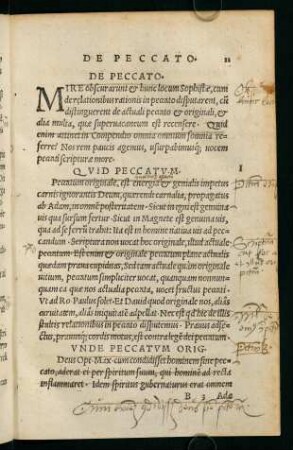 DE PECCATO.
DE PECCATO.
MIRE obscurarunt & hunc locum Sophistæ, cum
de relationibus rationis in peccato disputarent, cũ
distinguerent de actuali peccato & originali, &
alia multa, quæ supervacaneum est recensere. Quid
enim attinet in Compendio omnia omnium somnia re
ferre? Nos rem paucis agemus, usurpabimusq; nocem
peccati scripturæ more.
QVID PECCATVM.
Peccatum originale, est energia & genialis impetus
carnis ignorantis Deum, quærentis carnalia, propagatus
ab Adam, in omnem posteritatem. Sicut in igni est genuina
uis qua sursum fertur. Sicut in Magnete est genuina uis,
qua ad se ferrũ trahit: Ita est in homine natiua uis ad pec=
candum. Scriptura non uocat hoc originale, illud actuale
peccatum. Est enim & originale peccatum plane actualis
quædam praua cupiditas. Sed tam actuale quàm originale
uitium, peccatum simpliciter uocat, quanquam nonnun=
quam ea quæ nos actualia peccata, uocet fructus peccati.
Vt ad Ro. Paulus solet. Et Dauid quod originale nos, aliâs
curuitatem, aliâs iniquitatẽ adpellat. Nec est qđ hic de illis
stultis relationibus in peccato disputemus. Prauus adfe=
ctus, prauusq; cordis motus, est contra legẽ dei peccatum.
VNDE PECCATVM ORIG.
Deus Opt. Max. cum condidisset hominem sine pec=
cato, aderat ei per spiritum suum, qui hominẽ ad recta
inflammaret. Idem spiritus gubernaturus erat omnem
B 3 Adæ